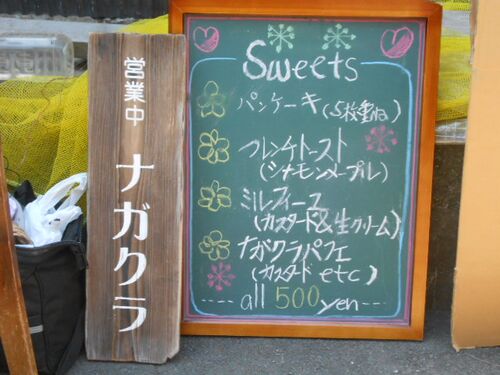 営業中
ナガクラ
Sweets
パンケーキ(5枚重ね)
フレンチトースト
(シナモンメープル)
ミルフィーユ
(カスタード&生クリーム)
ナガクラパフェ
(カスタード etc)
---- all 500 yen ---